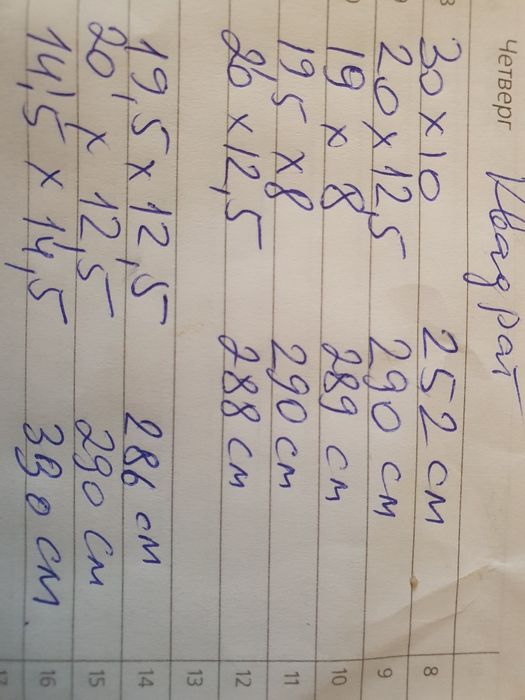 Четверг
Квадрат
8 30 x 10 252 см
9 20 x 12,5 290 см
10 19 x 8 289 см
11 19,5 x 8 290 см
12 20 x 12,5 288 см
13
14 19,5 x 12,5 286 см
15 20 x 12,5 290 см
16 14,5 x 14,5 390 см.
17